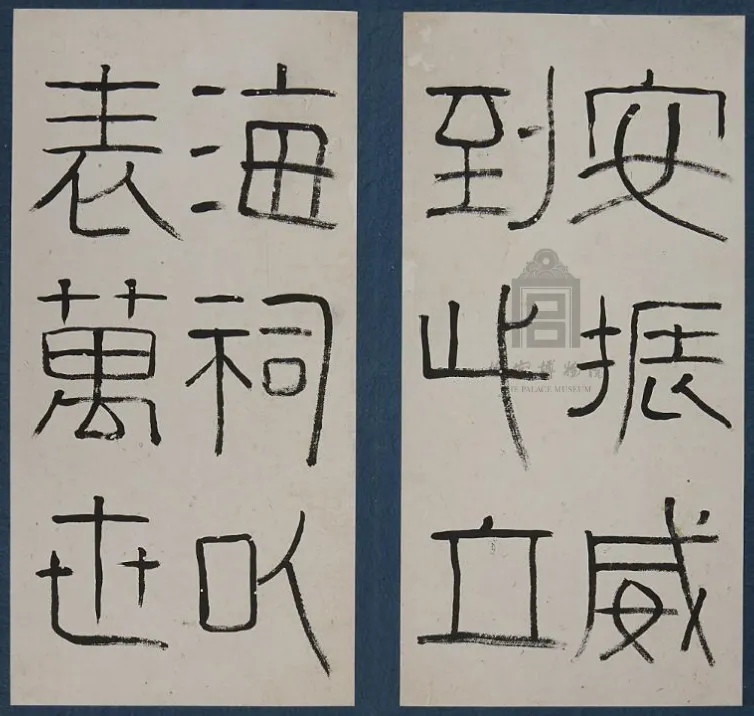 安振威
到此立
海祠以
表萬世
故宫博物院
THE PALACE MUSEUM